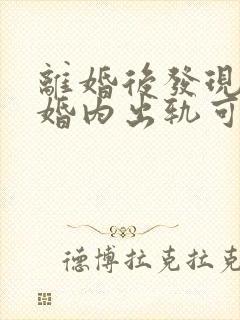 離婚後發現
婚内出轨可
德博拉克拉克